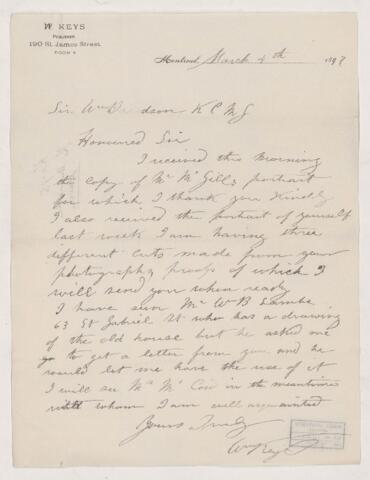 W. KEYS
190 St. James Street.
ROOM 4
Montreal, March 4th 1893
Sir Wm Dawson K C M G
Honoured Sir
I received this Morning
the copy of Mr McGill's portrait
for which I thank you Kindly
I also received the portrait of yourself
last week I am having three
different cuts made from your
photographs proofs of which I
will send you when ready
I have seen Mr W B Lambe
63 St Gabriel St who has a drawing
of the old house but he asked me
to get a letter from you and he
would let me have the use of it
I will see Mr Mc in the meantime
with whom I am well acquainted
Yours Truly
Wm Keys